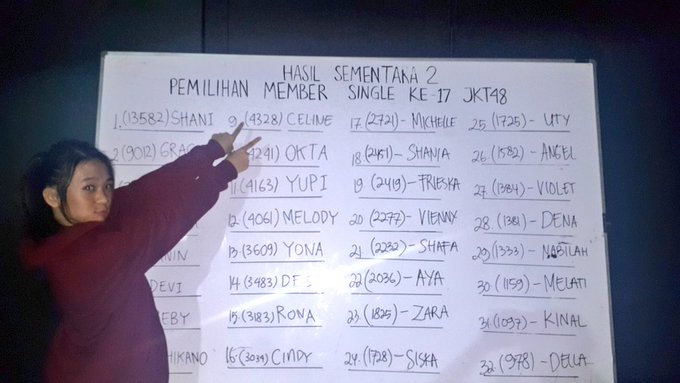 HASIL SEMENTARA 2
PEMILIHAN MEMBER SINGLE KE-17 JKT48
1. (13582) SHANI
2 (9012) GRAC
NIN
DEVI
EBY
HIKANO
9. (4328) CELINE
4241) OKTA
11. (4163) YUPI
12. (4061) MELODY
13. (3609) YONA
14. (3483) DESI
15. (3183) RONA
16. (3034) CINDY
17. (2721) - MICHELLE
18. (2451) - SHANIA
19. (2419) - FRIESKA
20. (2277) - VIENNY
21. (2232) - SHAFA
22. (2036) - AYA
23. (1825) - ZARA
24. (1728) - SISKA
25. (1725) - UTY
26. (1582) - ANGEL
27. (1384) - VIOLET
28. (1381) - DENA
29. (1333) - NABILAH
30. (1159) - MELATI
31. (1097) - KINAL
32. (978) - DELLA